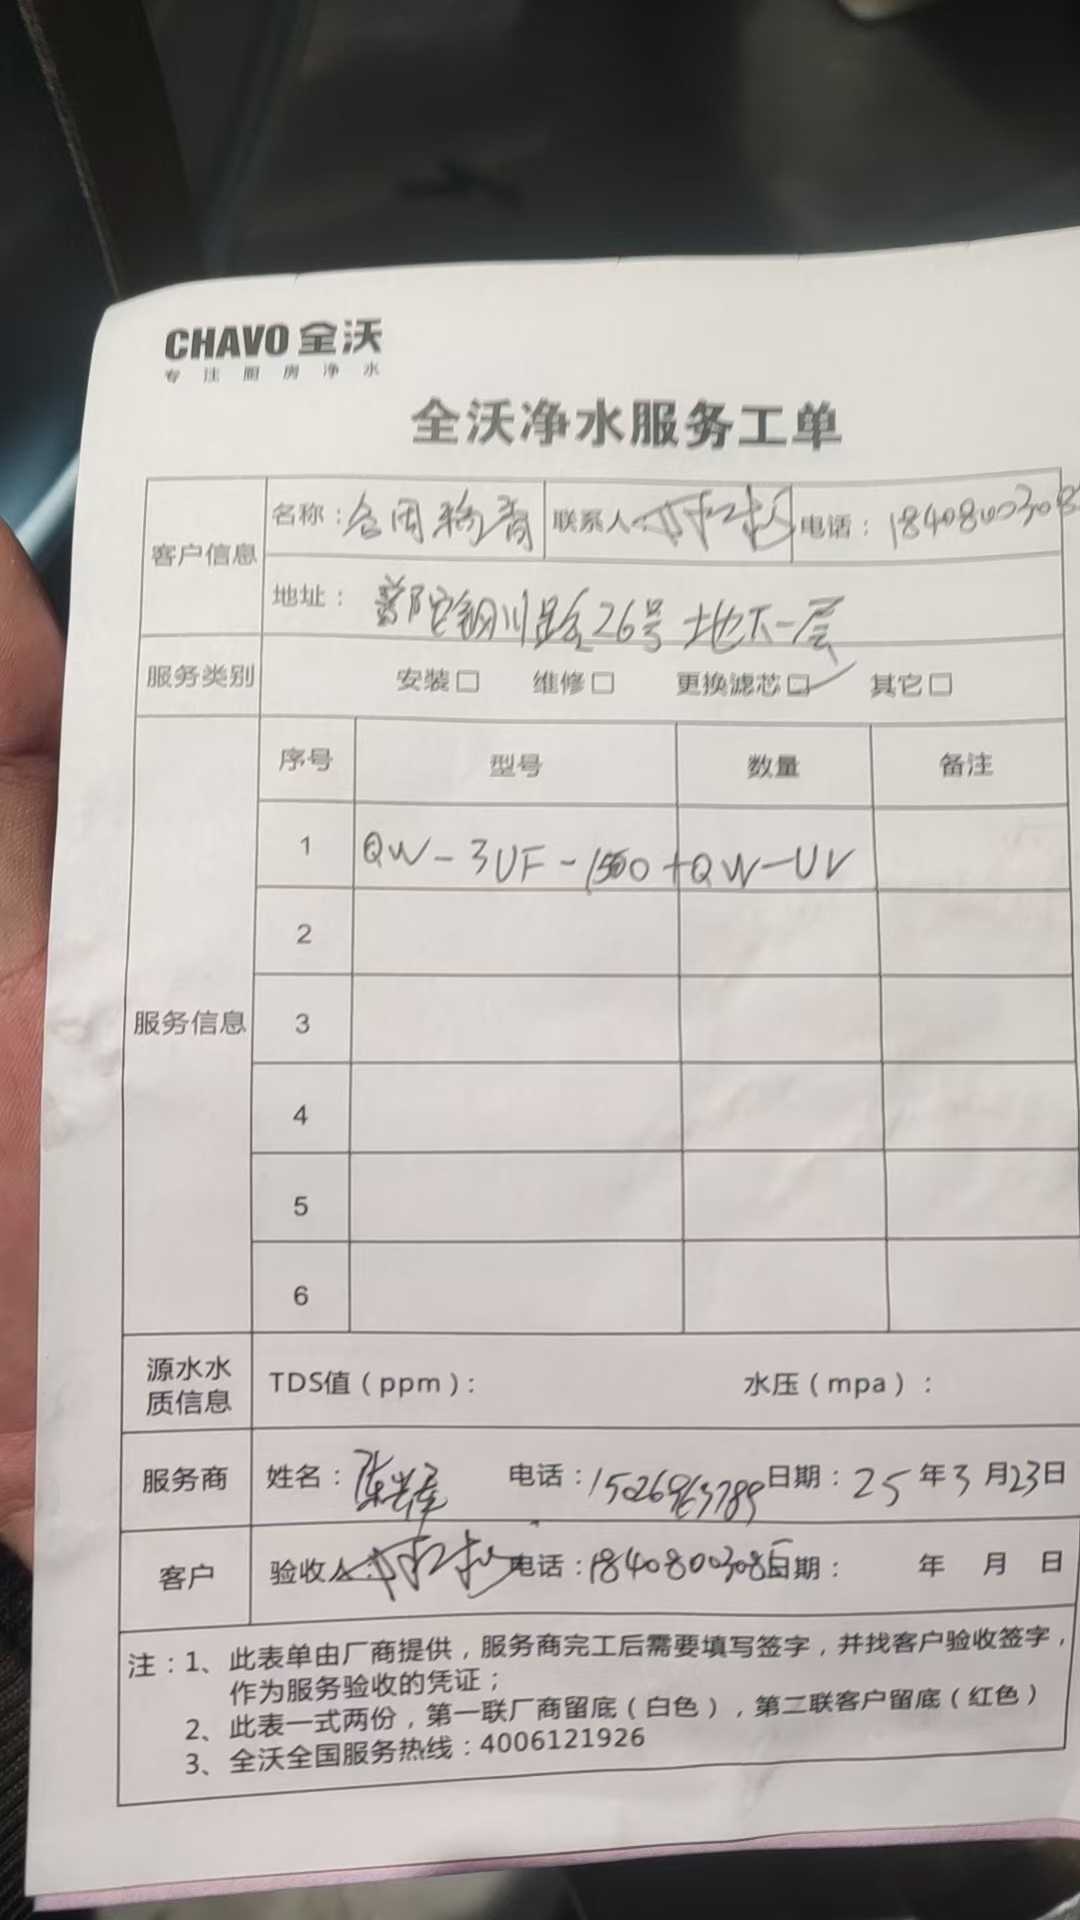 CHAVO 全沃
专注厨房净水
全沃净水服务工单
客户信息
名称： 联系人 电话：1840800308
地址：普陀铜川路26号地下一层
服务类别 安装□ 维修□ 更换滤芯□✓ 其它□
服务信息
序号 型号 数量 备注
1 QW-3UF-1500+QW-UV
2
3
4
5
6
源水水质信息 TDS值（ppm）： 水压（mpa）：
服务商 姓名：陈 电话：15026963789 日期：25年3月23日
客户 验收人： 电话：18408003085 日期： 年 月 日
注：1、此表单由厂商提供，服务商完工后需要填写签字，并找客户验收签字，
作为服务验收的凭证；
2、此表一式两份，第一联厂商留底（白色），第二联客户留底（红色）
3、全沃全国服务热线：4006121926